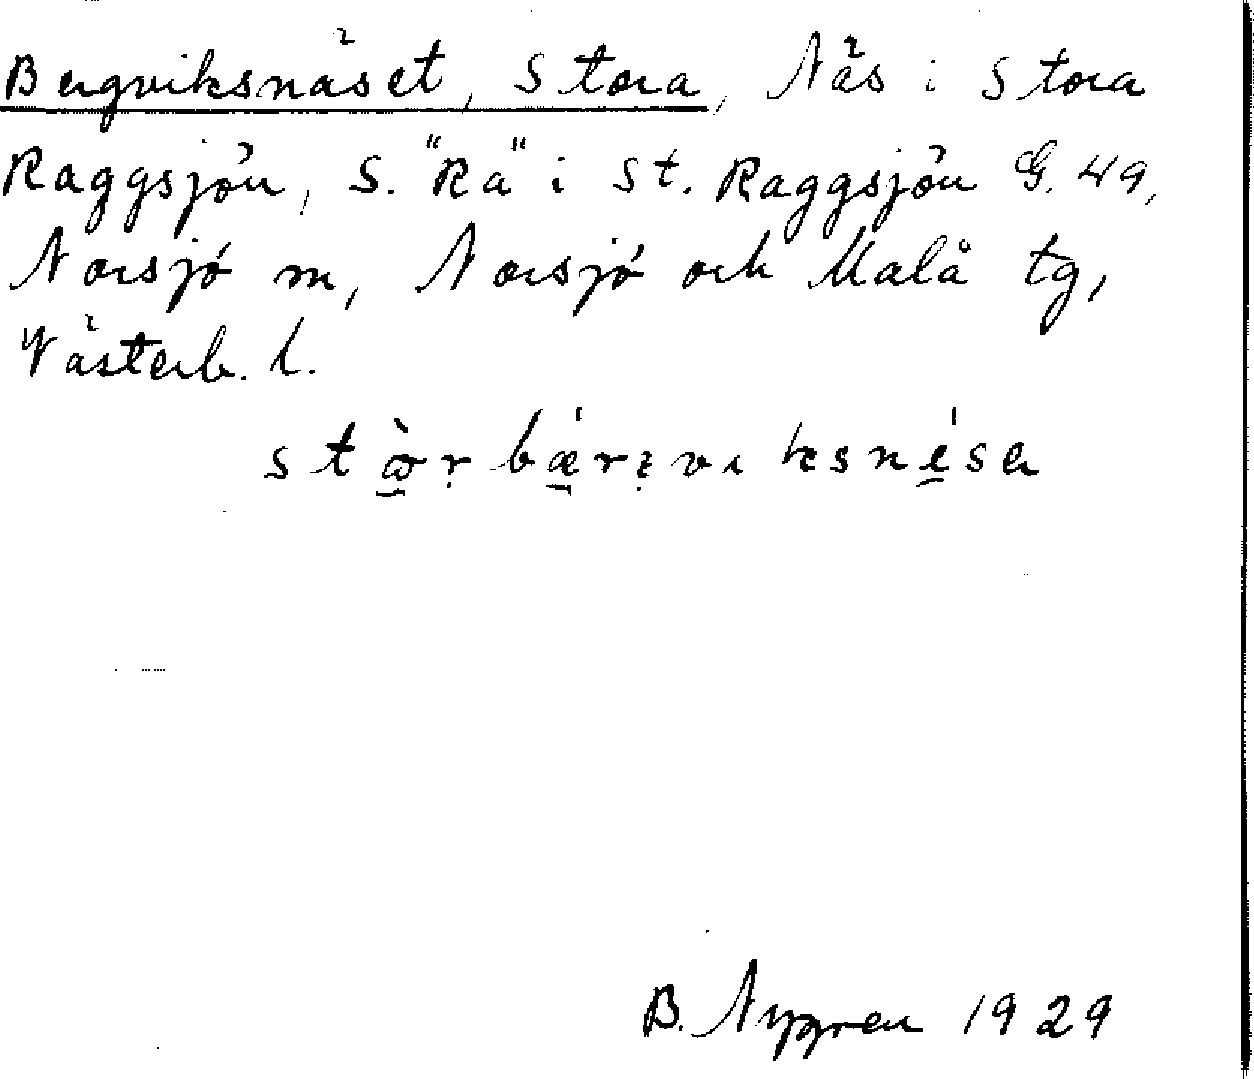 Bergviksnäset, Stora, Näs i Stora
Raggsjön, S. "Ra" i St. Raggsjön G. 49,
Norsjö sn, Norsjö och Malå tg,
Västerb. l.
B. Nygren 1929